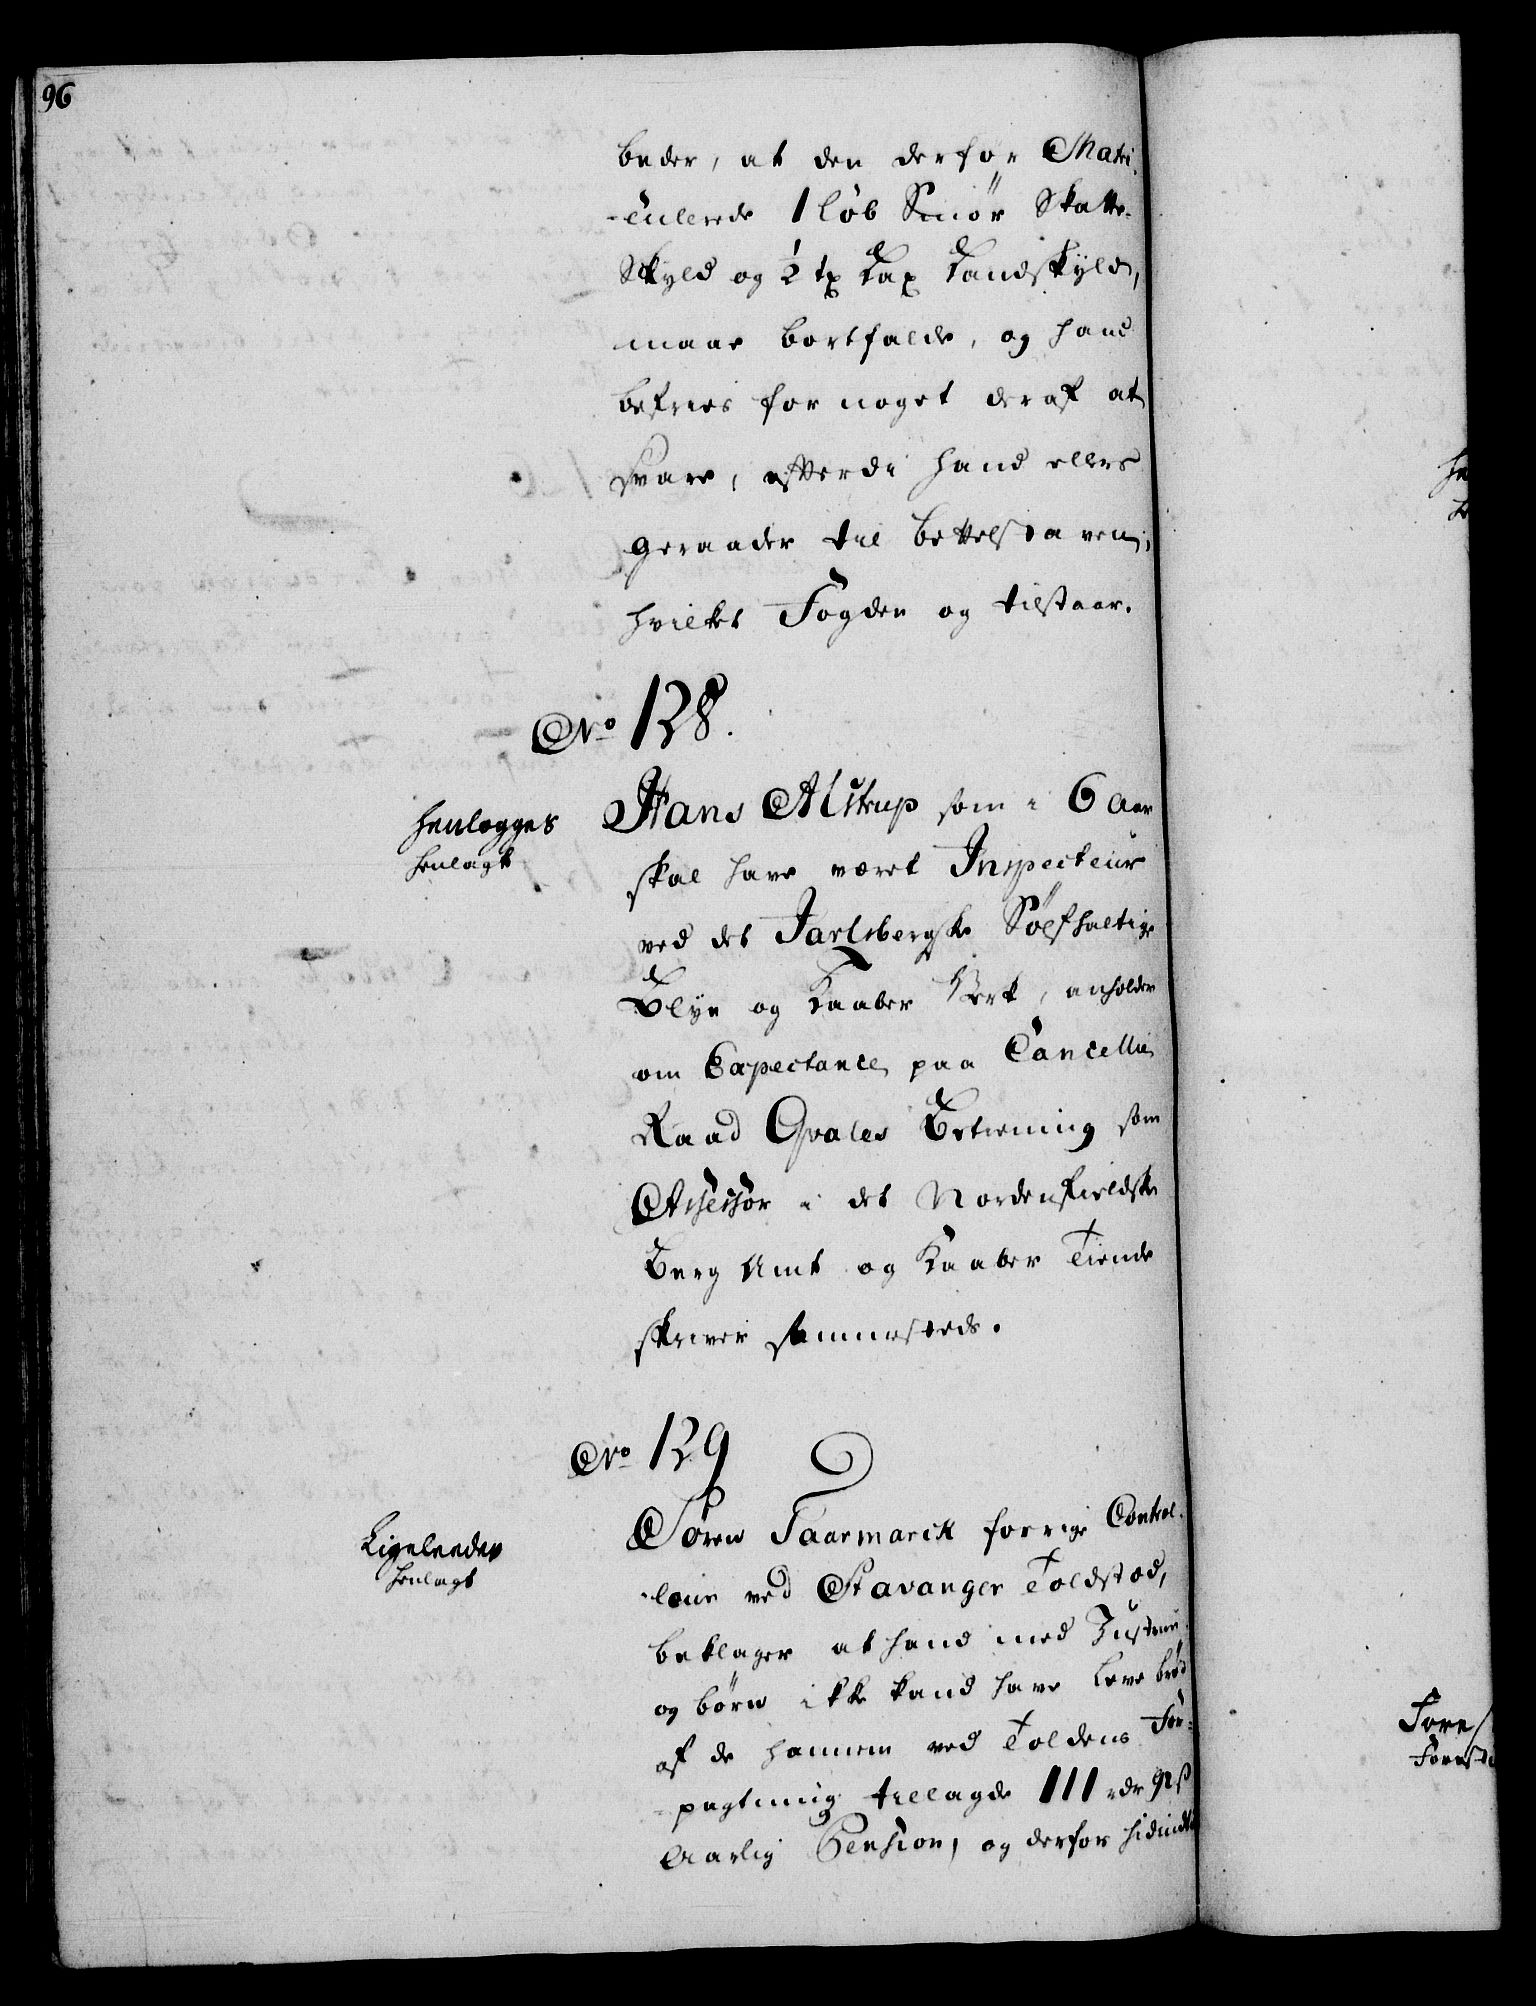 96
beder, at den derfor Matri-
-culerede 1 løb Smør Skatte-
Skyld og ½ tp Lax Landskyld,
maae bortfalde, og hand
befries for noget deraf at
svare, efterdi hand ellers
geraader til bettelstaven,
hvilket Fogden og tilstaar.
No 128.
henlægges
henlagt
Hans Alstrup som i 6 Aar
skal have været Inspecteur
ved det Jarlsbergske Sølfhaltige
Blye og Kaaber Verk, anholder
om Expectance paa Cancellie
Raad Qvales Betiening som
Assessor i det Nordenfieldske
Berg Amt og Kaaber Tiende
skriver sammesteds.
No 129
Ligeleedes
henlagt
Søren Taarmarck forrige Control-
-leur ved Stavanger Toldstod,
beklager at hand med Hustrue
og børn ikke kand have leve brød
af de hannem ved Toldens For-
-pagtning tillagde 111 rdr 92 s
Aarlig Pension, og derfor hidindtil